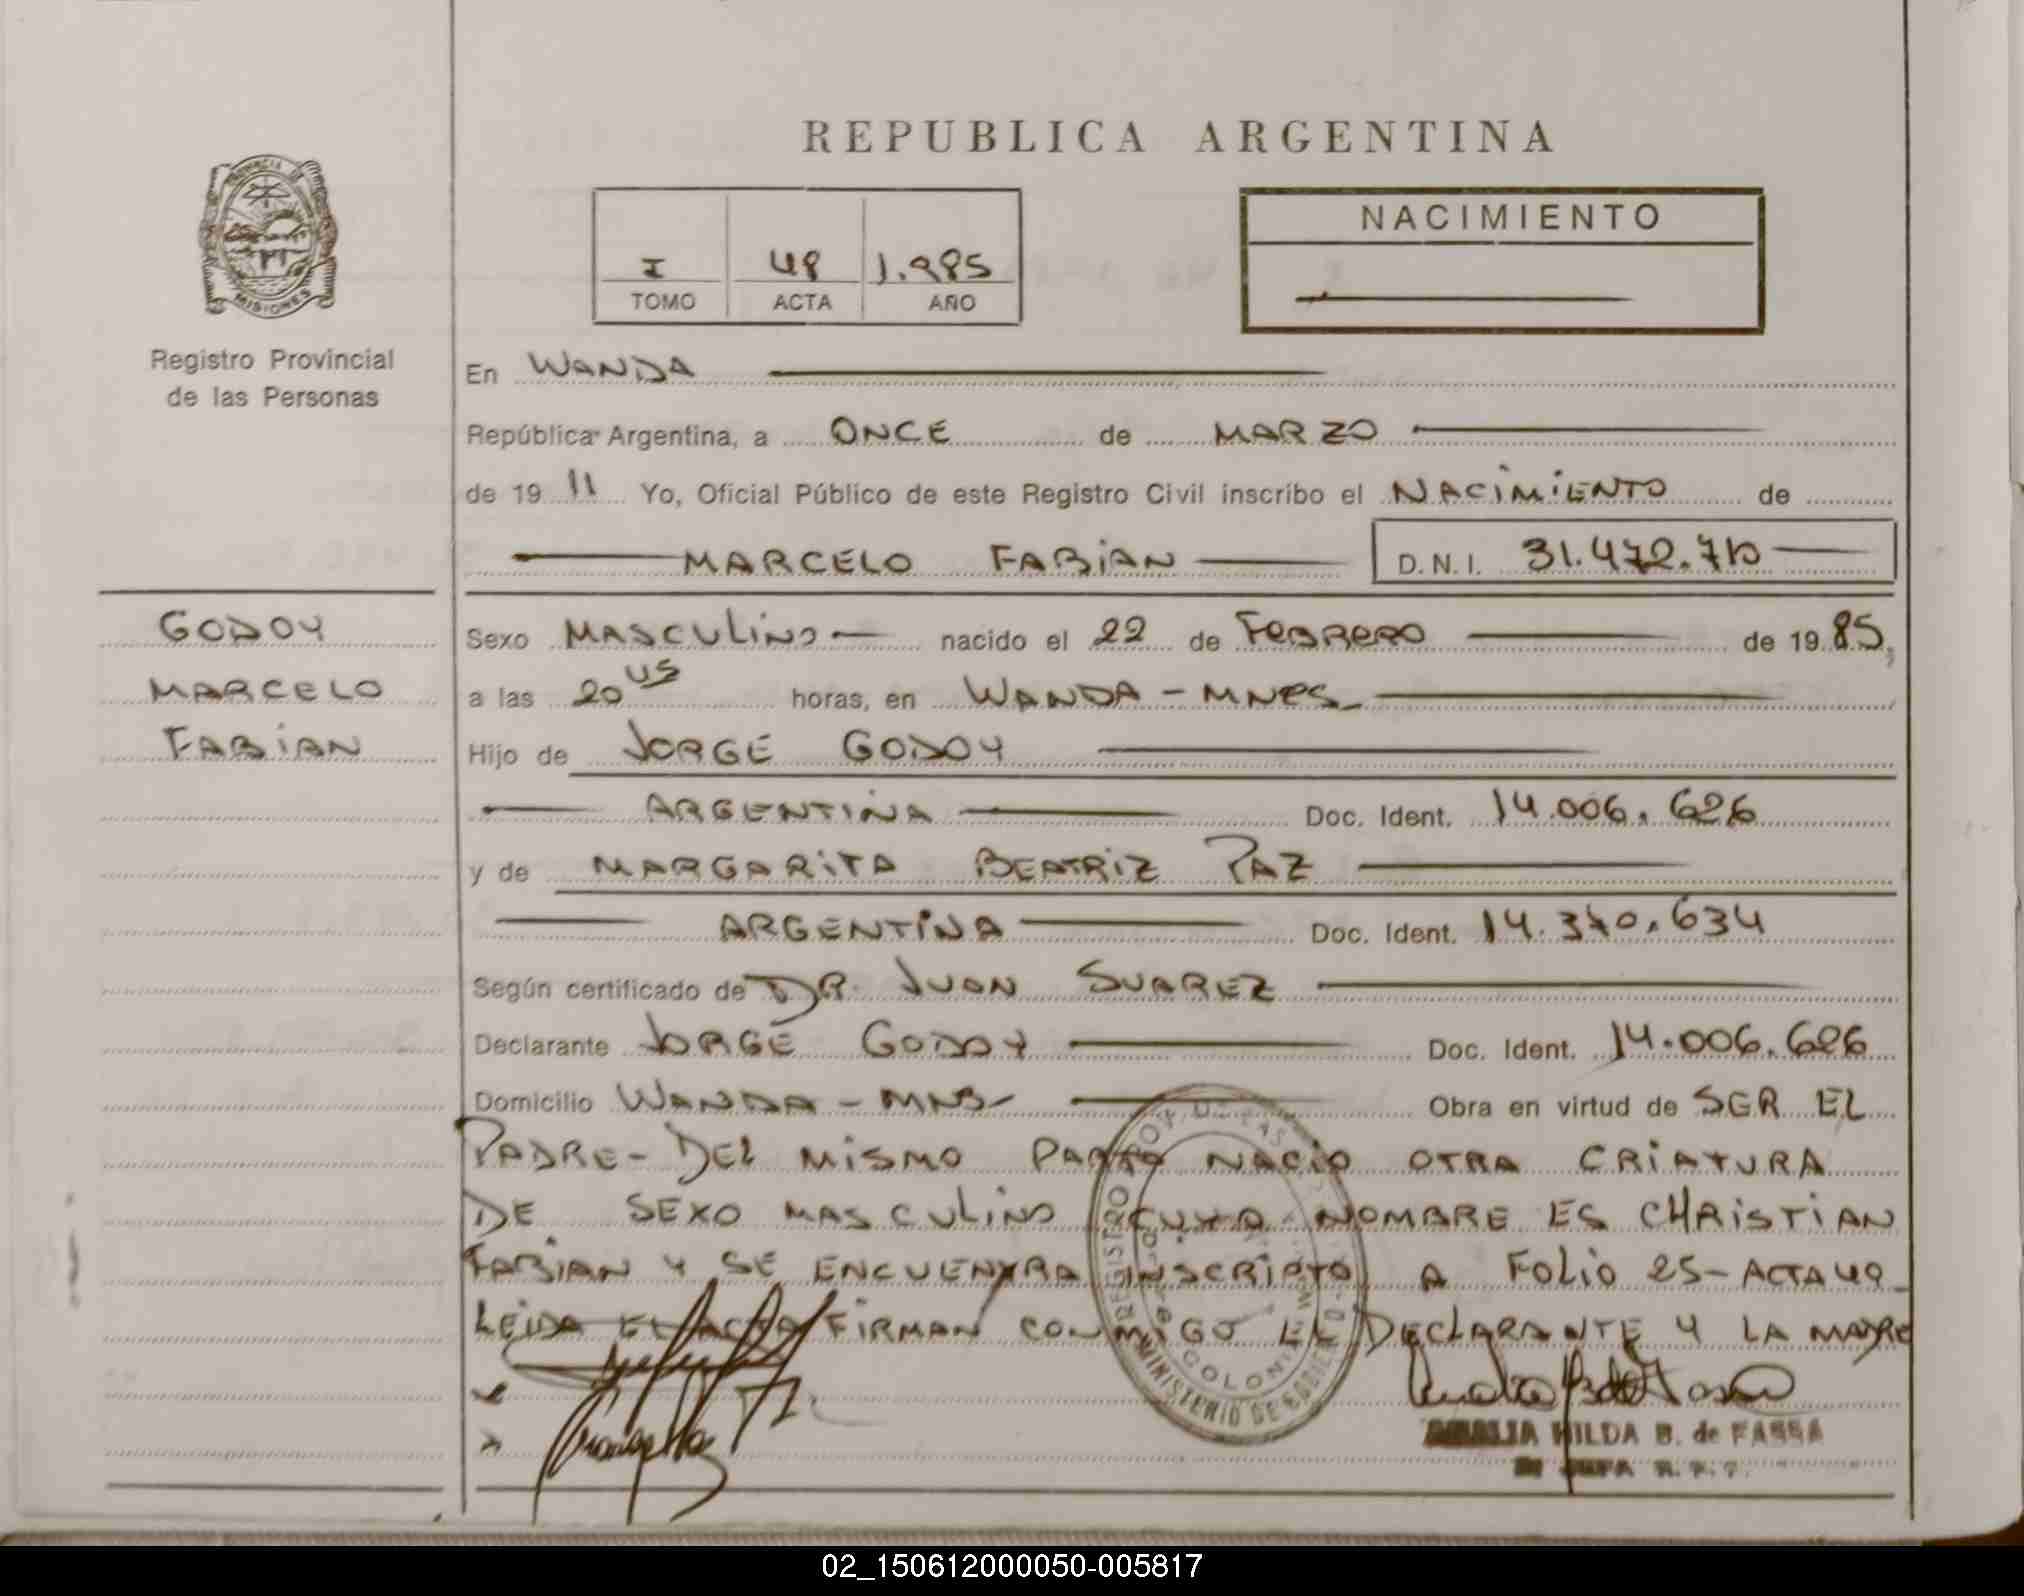 REPUBLICA ARGENTINA
PROVINCIA DE
MISIONES
Registro Provincial
de las Personas
I 48 1.985
TOMO ACTA AÑO
NACIMIENTO
En WANDA
República Argentina, a ONCE de MARZO
de 19 11 Yo, Oficial Público de este Registro Civil inscribo el NACIMIENTO de
MARCELO FABIAN D.N.I. 31.472.710
GODOY
MARCELO
FABIAN
Sexo MASCULINO nacido el 22 de FEBRERO de 19 85,
a las 20 45 horas, en WANDA - MNES
Hijo de JORGE GODOY
ARGENTINA Doc. Ident. 14.006.626
y de MARGARITA BEATRIZ PAZ
ARGENTINA Doc. Ident. 14.340.634
Según certificado de DR. JUAN SUAREZ
Declarante JORGE GODOY Doc. Ident. 14.006.626
Domicilio WANDA - MNS Obra en virtud de SER EL
PADRE - DEL MISMO PARTO NACIO OTRA CRIATURA
DE SEXO MASCULINO CUYO NOMBRE ES CHRISTIAN
FABIAN Y SE ENCUENTRA INSCRIPTO A FOLIO 25 - ACTA 49
LEIDA EL ACTA FIRMAN CONMIGO EL DECLARANTE Y LA MADRE
AMALIA HILDA B. de FASSA
02_150612000050-005817